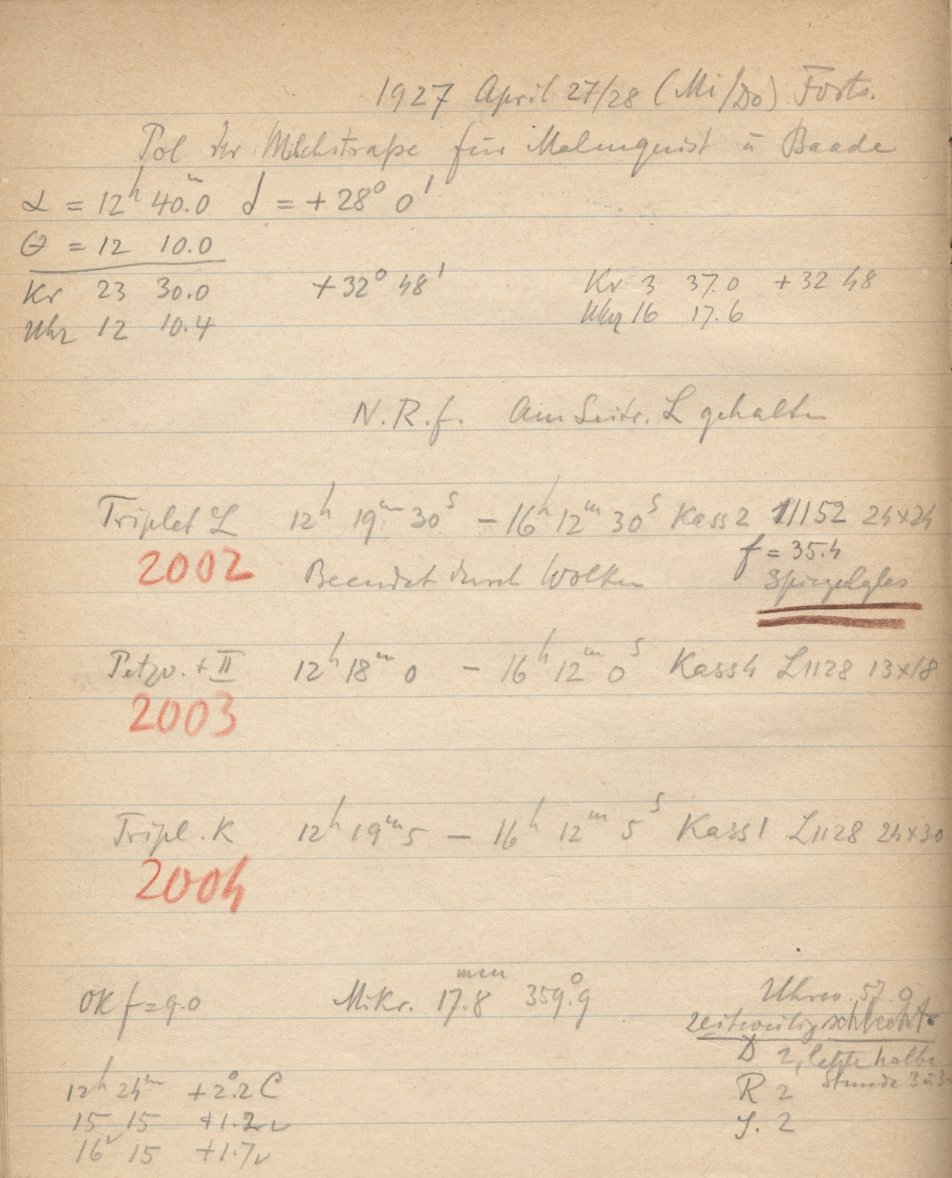 1927 April 27/28 (Mi/Do) Forts.
Pol der Milchstraße für Malmquist u Baade
α = 12h 40.0m δ = +28° 0'
Θ = 12 10.0
Kr 23 30.0 +32° 48' Kr 3 37.0 +32 48
Uhr 12 10.4 Uhr 16 17.6
N.R.f. Am Leitr. L gehalten
Triplet L 12h 19m 30s – 16h 12m 30s Kass 2 11152 24×24
f = 35.4
2002 Beendet durch Wolken Spiegelglas
Petzv. + II 12h 18m 0 – 16h 12m 0s Kass 4 L1128 13×18
2003
Tripl. K 12h 19m 5 – 16h 12m 5s Kass 1 L1128 24×30
2004
OK f=9.0 Mikr. 17.8mm 359.°9 Uhrw. 57.0
zeitweilig schlecht
D 2, letzte halbe
Stunde 3 u 3-
12h 24m +2.°2 C R 2
15 15 +1.2 J. 2
16 15 +1.7